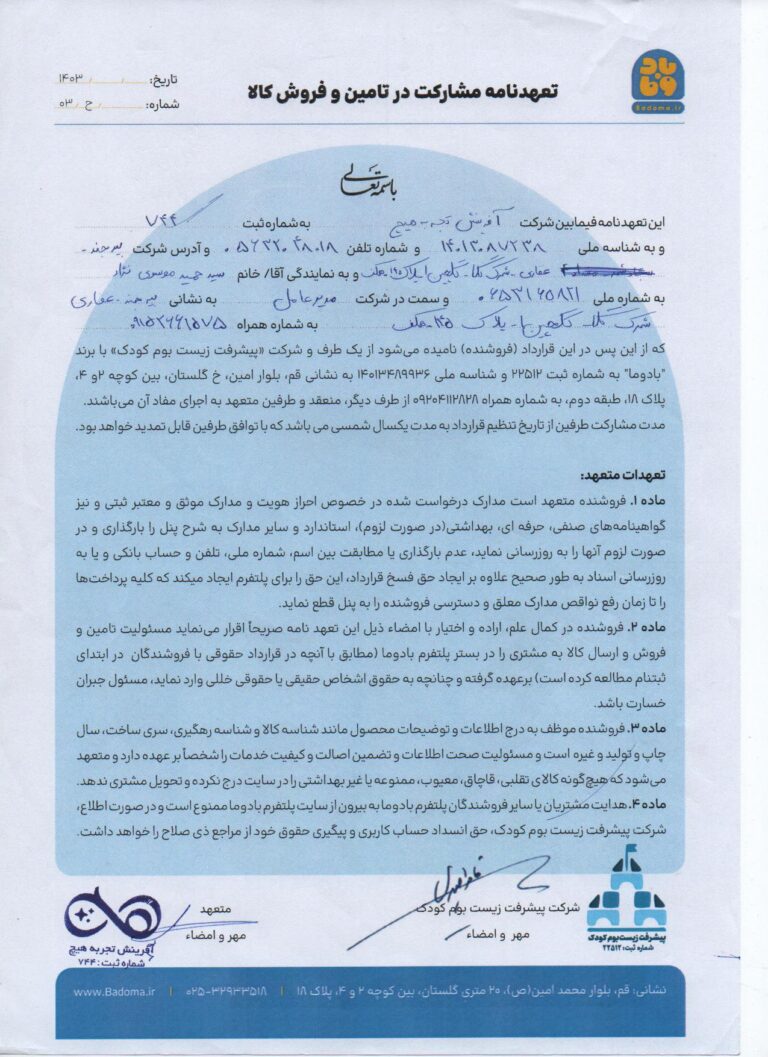 بادوما
Badoma.ir
تعهدنامه مشارکت در تامین و فروش کالا
تاریخ: / / ۱۴۰۳
شماره: / ح / ۰۳
باسمه تعالی
این تعهدنامه فیمابین شرکت آفرینش تجربه هیچ به شماره ثبت ۷۴۴
و به شناسه ملی ۱۴۰۱۳۰۸۷۲۳۸ و شماره تلفن ۰۵۶۳۲۰۴۸۰۱۸ و آدرس شرکت بیرجند -
غفاری - شهرک گلها - گلچین و به نمایندگی آقا/ خانم سید حمید موسوی نژاد
به شماره ملی ۰۶۵۳۱۶۵۸۲۱ و سمت در شرکت مدیرعامل به نشانی بیرجند - غفاری
شهرک گلها - گلچین - پلاک به شماره همراه ۰۹۱۵۲۶۶۱۵۷۵
که از این پس در این قرارداد (فروشنده) نامیده می‌شود از یک طرف و شرکت «پیشرفت زیست بوم کودک» با برند
"بادوما" به شماره ثبت ۲۲۵۱۲ و شناسه ملی ۱۴۰۱۳۴۸۹۹۳۶ به نشانی قم، بلوار امین، خ گلستان، بین کوچه ۲ و ۴،
پلاک ۱۸، طبقه دوم، به شماره همراه ۰۹۲۰۴۱۱۲۸۲۸ از طرف دیگر، منعقد و طرفین متعهد به اجرای مفاد آن می‌باشند.
مدت مشارکت طرفین از تاریخ تنظیم قرارداد به مدت یکسال شمسی می باشد که با توافق طرفین قابل تمدید خواهد بود.
تعهدات متعهد:
ماده ۱. فروشنده متعهد است مدارک درخواست شده در خصوص احراز هویت و مدارک موثق و معتبر ثبتی و نیز
گواهینامه‌های صنفی، حرفه ای، بهداشتی(در صورت لزوم)، استاندارد و سایر مدارک به شرح پنل را بارگذاری و در
صورت لزوم آنها را به روزرسانی نماید، عدم بارگذاری یا مطابقت بین اسم، شماره ملی، تلفن و حساب بانکی و یا به
روزرسانی اسناد به طور صحیح علاوه بر ایجاد حق فسخ قرارداد، این حق را برای پلتفرم ایجاد میکند که کلیه پرداخت‌ها
را تا زمان رفع نواقص مدارک معلق و دسترسی فروشنده را به پنل قطع نماید.
ماده ۲. فروشنده در کمال علم، اراده و اختیار با امضاء ذیل این تعهد نامه صریحاً اقرار می‌نماید مسئولیت تامین و
فروش و ارسال کالا به مشتری را در بستر پلتفرم بادوما (مطابق با آنچه در قرارداد حقوقی با فروشندگان در ابتدای
ثبتنام مطالعه کرده است) برعهده گرفته و چنانچه به حقوق اشخاص حقیقی یا حقوقی خللی وارد نماید، مسئول جبران
خسارت باشد.
ماده ۳. فروشنده موظف به درج اطلاعات و توضیحات محصول مانند شناسه کالا و شناسه رهگیری، سری ساخت، سال
چاپ و تولید و غیره است و مسئولیت صحت اطلاعات و تضمین اصالت و کیفیت خدمات را شخصاً بر عهده دارد و متعهد
می‌شود که هیچ‌گونه کالای تقلبی، قاچاق، معیوب، ممنوعه یا غیر بهداشتی را در سایت درج نکرده و تحویل مشتری ندهد.
ماده ۴. هدایت مشتریان یا سایر فروشندگان پلتفرم بادوما به بیرون از سایت پلتفرم بادوما ممنوع است و در صورت اطلاع،
شرکت پیشرفت زیست بوم کودک، حق انسداد حساب کاربری و پیگیری حقوق خود از مراجع ذی صلاح را خواهد داشت.
شرکت پیشرفت زیست بوم کودک
مهر و امضاء
پیشرفت زیست بوم کودک
شماره ثبت: ۲۲۵۱۲
متعهد
مهر و امضاء
آفرینش تجربه هیچ
شماره ثبت: ۷۴۴
نشانی: قم، بلوار محمد امین(ص)، ۲۰ متری گلستان، بین کوچه ۲ و ۴، پلاک ۱۸ | ۰۲۵-۳۲۹۳۳۵۱۸ | www.Badoma.ir